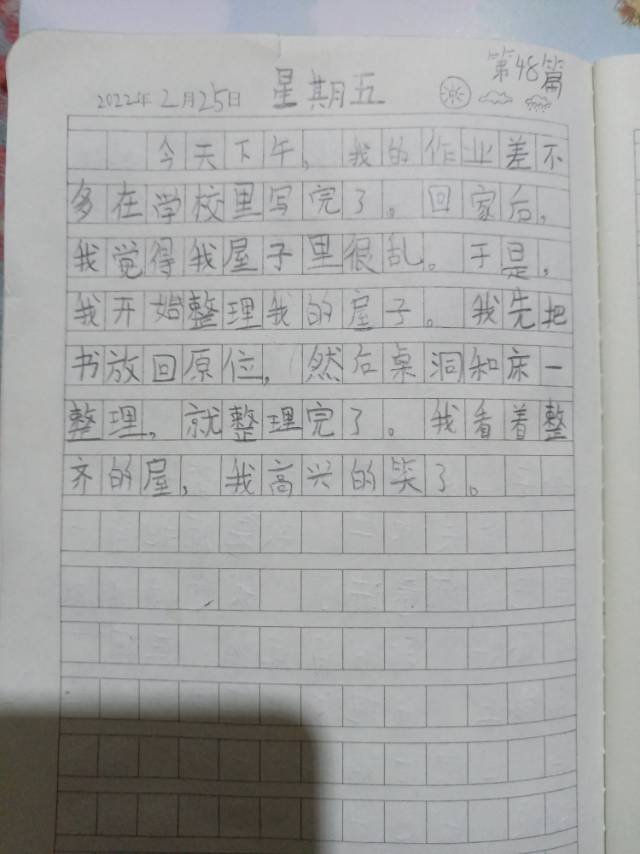 第48篇
2022年2月25日 星期五
今天下午，我的作业差不
多在学校里写完了。回家后，
我觉得我屋子里很乱。于是，
我开始整理我的屋子。我先把
书放回原位，然后桌洞和床一
整理，就整理完了。我看着整
齐的屋，我高兴的笑了。